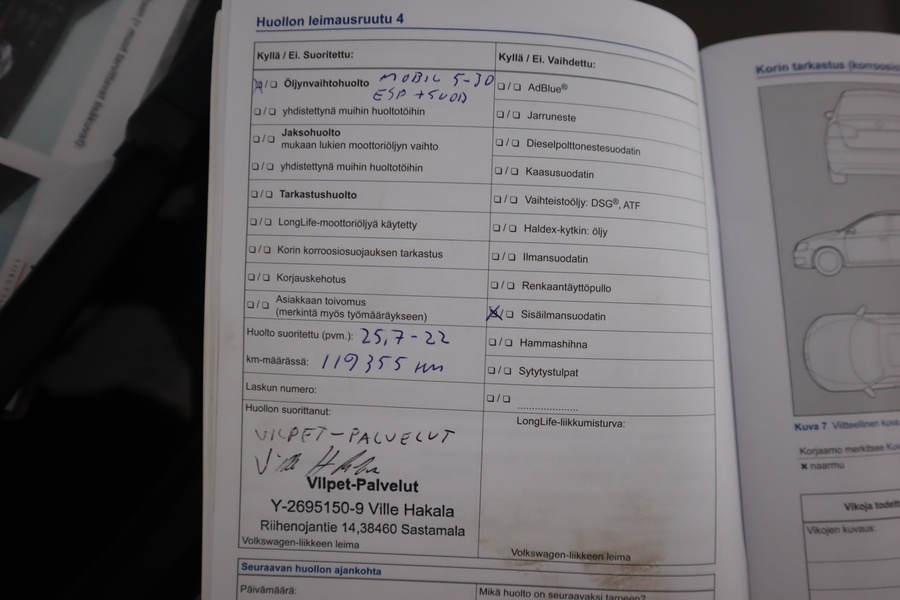 Huollon leimausruutu 4
Kyllä / Ei. Suoritettu:
❏/❏ Öljynvaihtohuolto MOBIL 5-30
ESP +SUOD
❏/❏ yhdistettynä muihin huoltotöihin
❏/❏ Jaksohuolto
mukaan lukien moottoriöljyn vaihto
❏/❏ yhdistettynä muihin huoltotöihin
❏/❏ Tarkastushuolto
❏/❏ LongLife-moottoriöljyä käytetty
❏/❏ Korin korroosiosuojauksen tarkastus
❏/❏ Korjauskehotus
❏/❏ Asiakkaan toivomus
(merkintä myös työmääräykseen)
Huolto suoritettu (pvm.): 25,7-22
km-määrässä: 119355
Laskun numero:
Huollon suorittanut:
VILPET-PALVELUT
Vilpet-Palvelut
Y-2695150-9 Ville Hakala
Riihenojantie 14,38460 Sastamala
Volkswagen-liikkeen leima
Kyllä / Ei. Vaihdettu:
❏/❏ AdBlue®
❏/❏ Jarruneste
❏/❏ Dieselpolttonestesuodatin
❏/❏ Kaasusuodatin
❏/❏ Vaihteistoöljy: DSG®, ATF
❏/❏ Haldex-kytkin: öljy
❏/❏ Ilmansuodatin
❏/❏ Renkaantäyttöpullo
❏/❏ Sisäilmansuodatin
❏/❏ Hammashihna
❏/❏ Sytytystulpat
❏/❏ ......................
LongLife-liikkumisturva:
Volkswagen-liikkeen leima
Seuraavan huollon ajankohta
Päivämäärä:
Mikä huolto on seuraavaksi
Korin tarkastus
Kuva 7 Viitteellinen
Korjaamo merkitsee
x naarmu
Vikoja
Vikojen kuvaus: